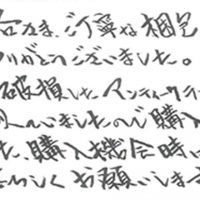 ご丁寧な梱包
りがとうございました。
破損した アンティーク
いましたので購入
た。購入機会時
ろしくお願いします